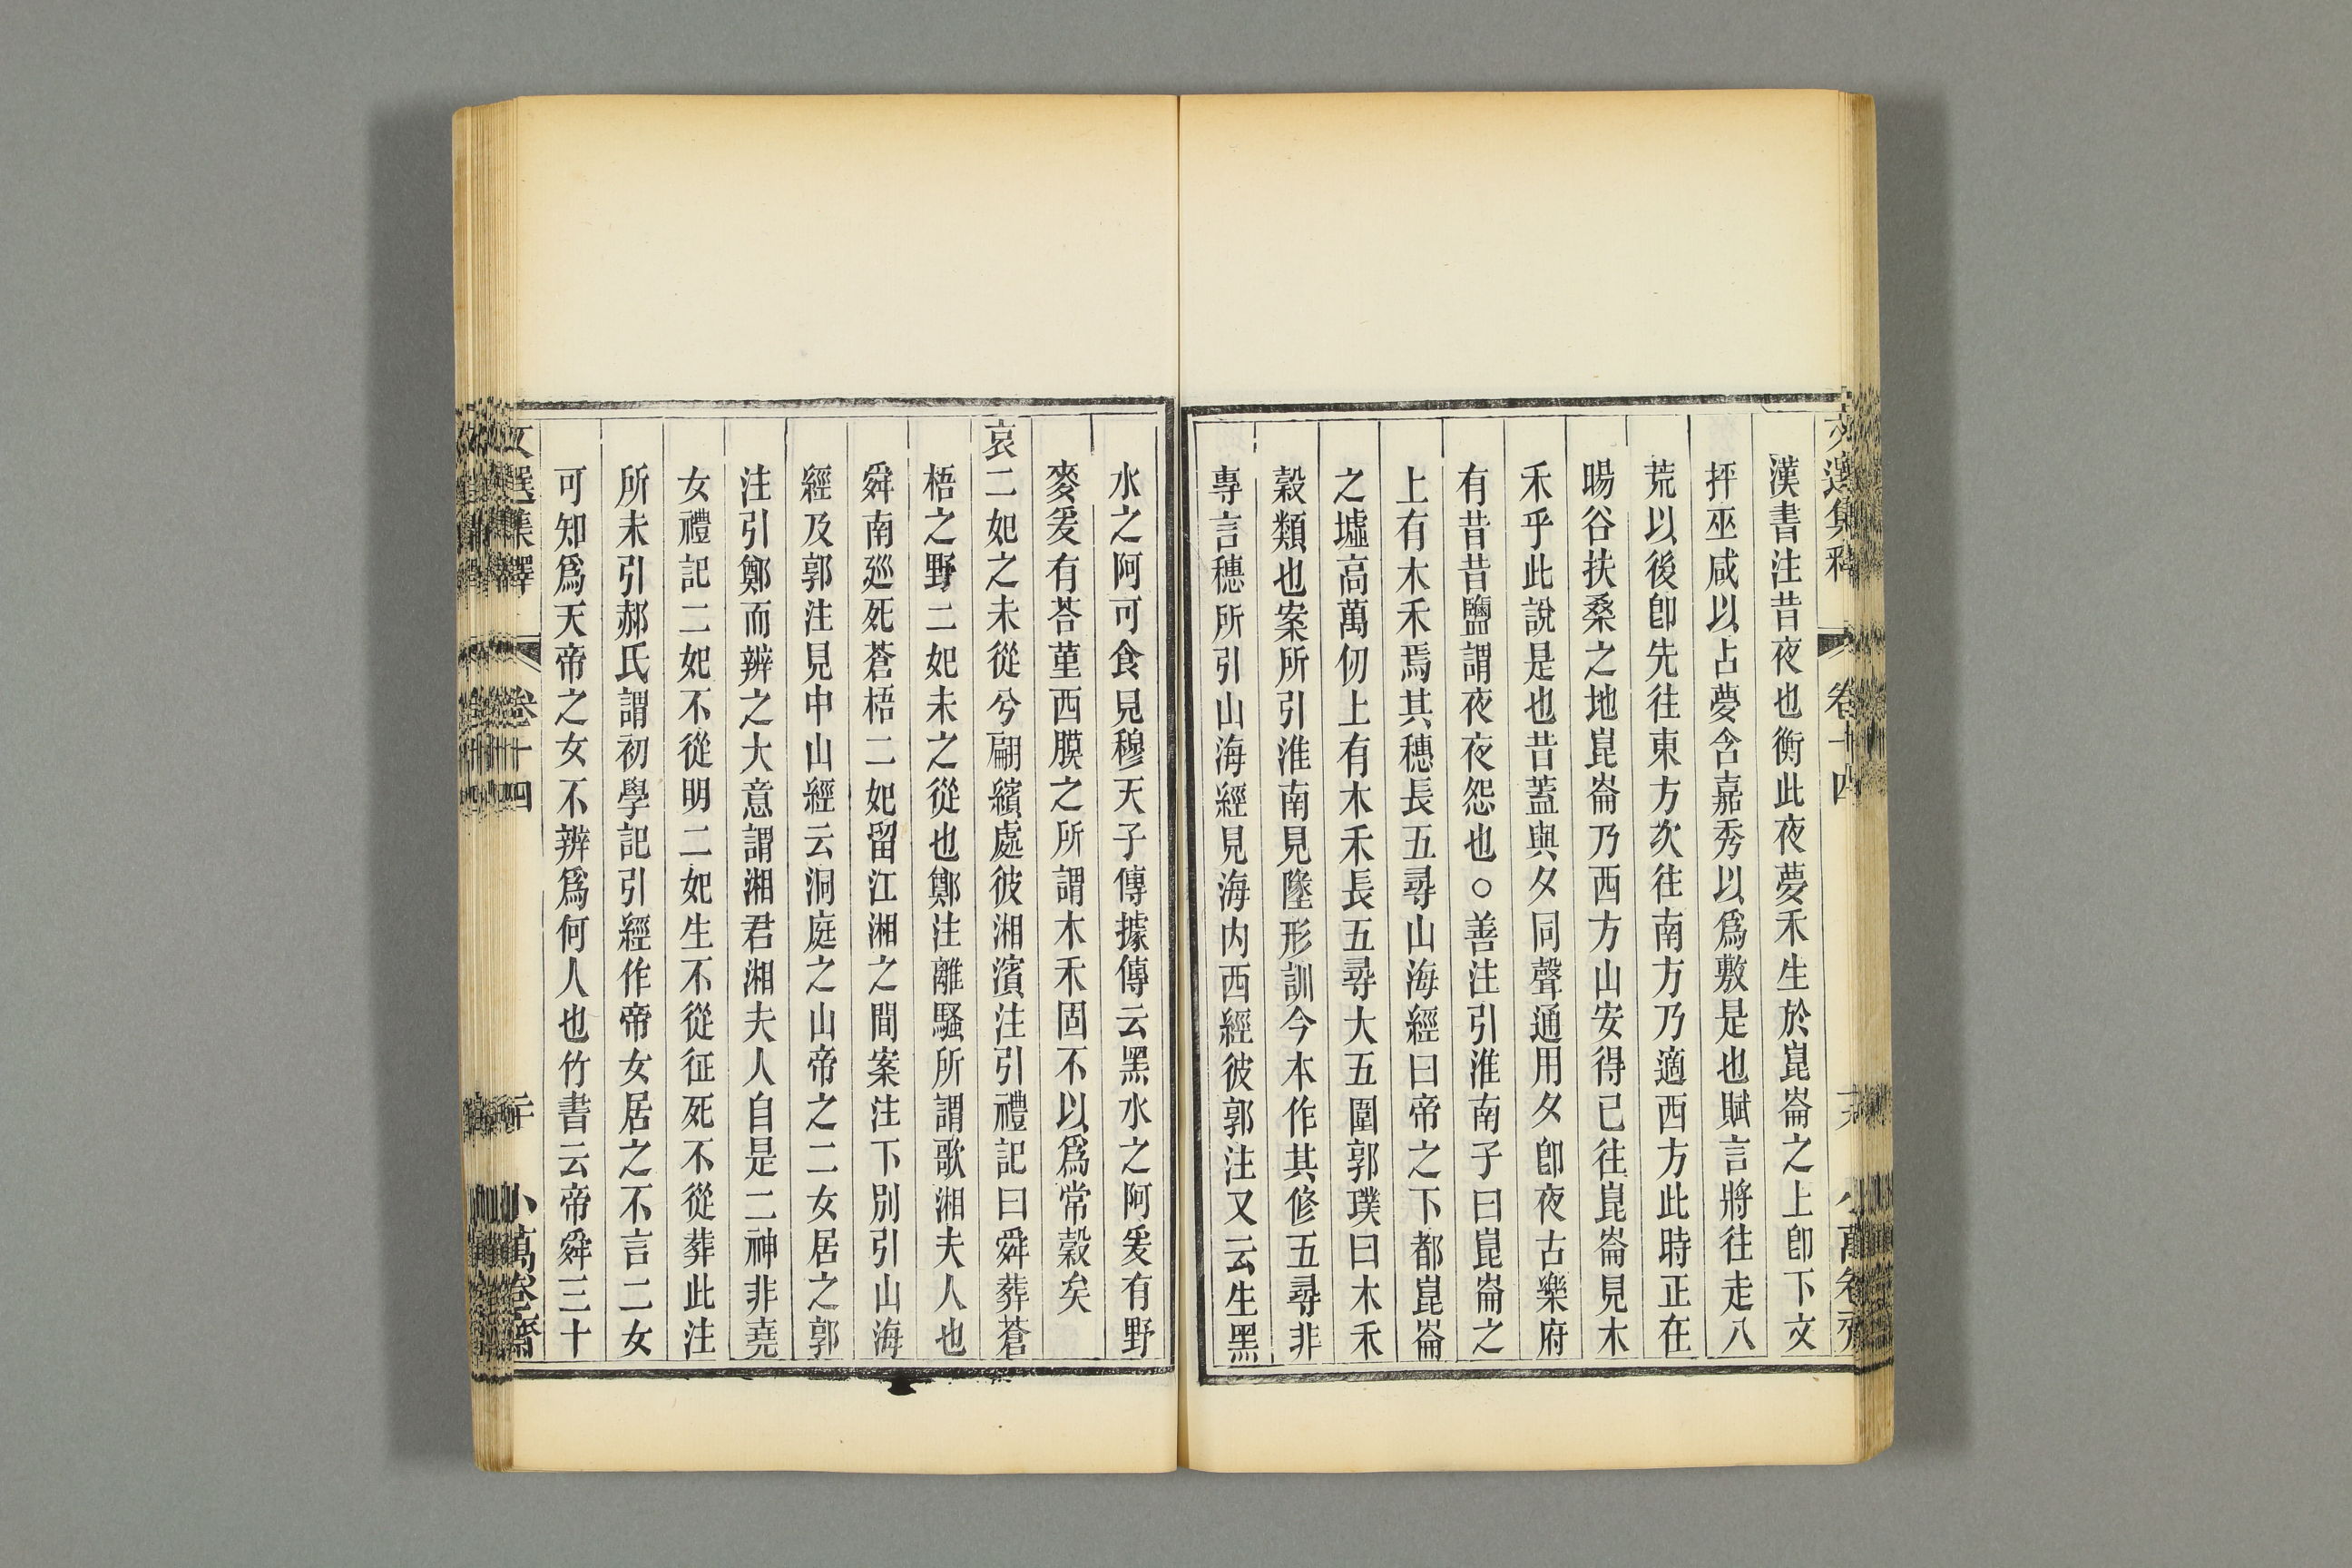 漢書注昔夜也衡此夜夢禾生於崑崙之上卽下文
抨巫咸以占夢含嘉秀以爲敷是也賦言將往走八
荒以後卽先往東方次往南方乃適西方此時正在
暘谷扶桑之地崑崙乃西方山安得已往崑崙見木
禾乎此說是也昔蓋與夕同聲通用夕卽夜古樂府
有昔昔鹽謂夜夜怨也○善注引淮南子曰崑崙之
上有木禾焉其穗長五尋山海經曰帝之下都崑崙
之墟高萬仞上有木禾長五尋大五圍郭璞曰木禾
穀類也案所引淮南見墬形訓今本作其修五尋非
專言穗所引山海經見海內西經彼郭注又云生黑
水之阿可食見穆天子傳據傳云黑水之阿爰有野
麥爰有荅堇西膜之所謂木禾固不以爲常穀矣
哀二妃之未從兮翩繽處彼湘濱注引禮記曰舜葬蒼
梧之野二妃未之從也鄭注離騷所謂歌湘夫人也
舜南廵死蒼梧二妃留江湘之間案注下別引山海
經及郭注見中山經云洞庭之山帝之二女居之郭
注引鄭而辨之大意謂湘君湘夫人自是二神非堯
女禮記二妃不從明二妃生不從征死不從葬此注
所未引郝氏謂初學記引經作帝女居之不言二女
可知爲天帝之女不辨爲何人也竹書云帝舜三十
文選集釋
卷十四
二十
小萬卷齋